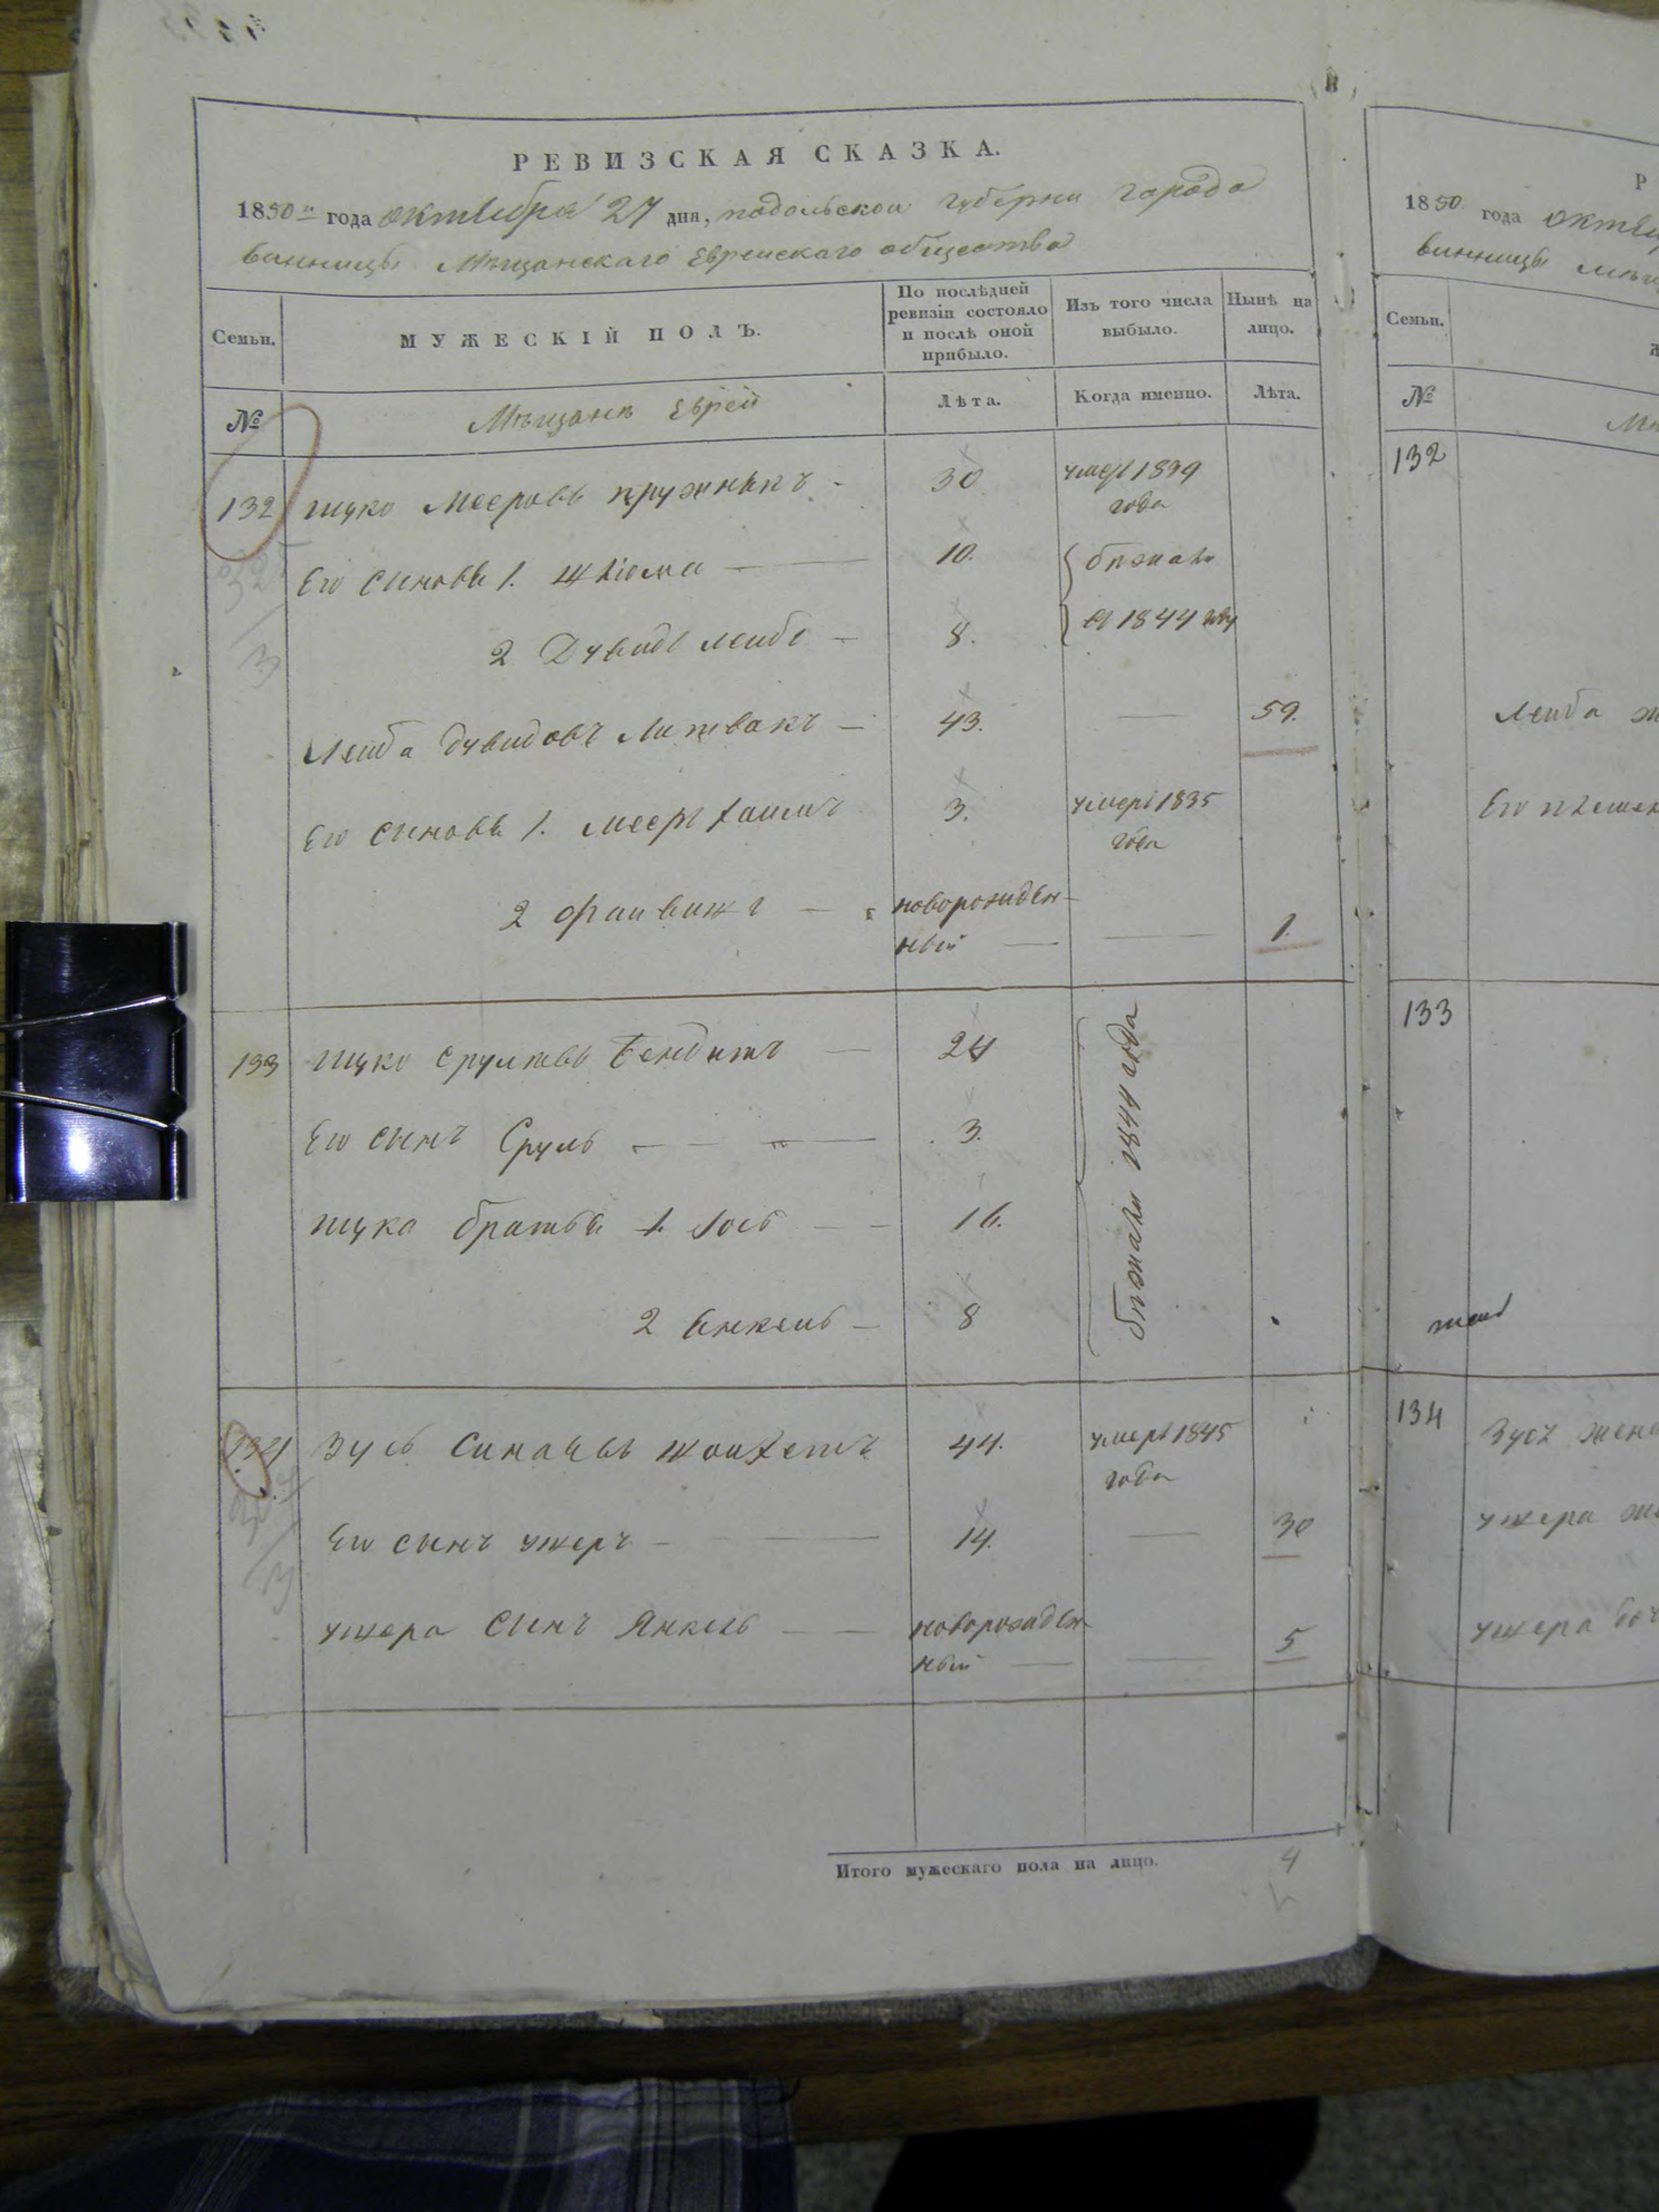 РЕВИЗСКАЯ СКАЗКА.
1850 года октября 27 дня, подольской губерни города
винницы Мѣщанскаго Еврейскаго общества
Семьи.
МУЖЕСКІЙ ПОЛЪ.
По послѣдней ревизіи состояло и послѣ оной прибыло.
Изъ того числа выбыло.
Нынѣ на лицо.
№
Мѣщане Евреи
Лѣта.
Когда именно.
Лѣта.
132 ицко Мееровъ 30 умеръ 1839 года
Его синовя 1. Шліома 10. бѣжали
2 Дувидъ лейбъ 8. въ 1844 году
Лейба дувидовъ Литвакъ 43. 59.
Его синовя 1. мееръ хаимъ 3. умеръ 1835 года
2 файвишъ новорожденный 1.
133 ицко Срулювъ 24 бѣжали 1844 года
Его сынъ Сруль 3.
ицка братья 1. Іось 16.
2 Янкель 8
134 Зусь 44. умеръ 1845 года
Его сынъ ушеръ 14. 30
ушера сынъ Янкель новорожденный 5
Итого мужескаго пола на лицо. 4
1850 года
винницы
Семьи.
№
132
Лейба
Его
133
134 Зусь жена
ушера
ушера